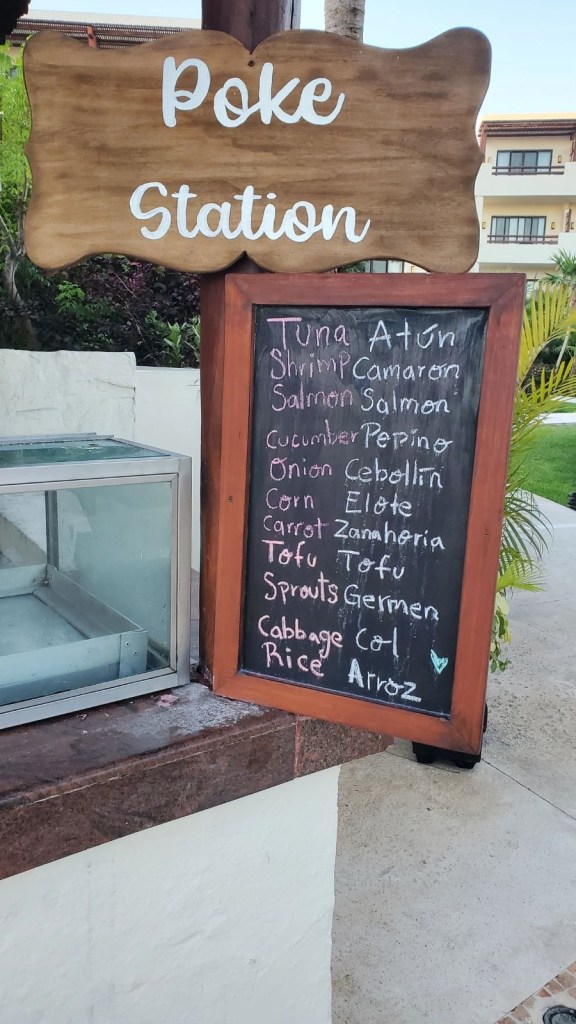 Poke
Station
Tuna Atún
Shrimp Camaron
Salmon Salmon
Cucumber Pepino
Onion Cebollín
Corn Elote
Carrot Zanahoria
Tofu Tofu
Sprouts Germen
Cabbage Col
Rice Arroz